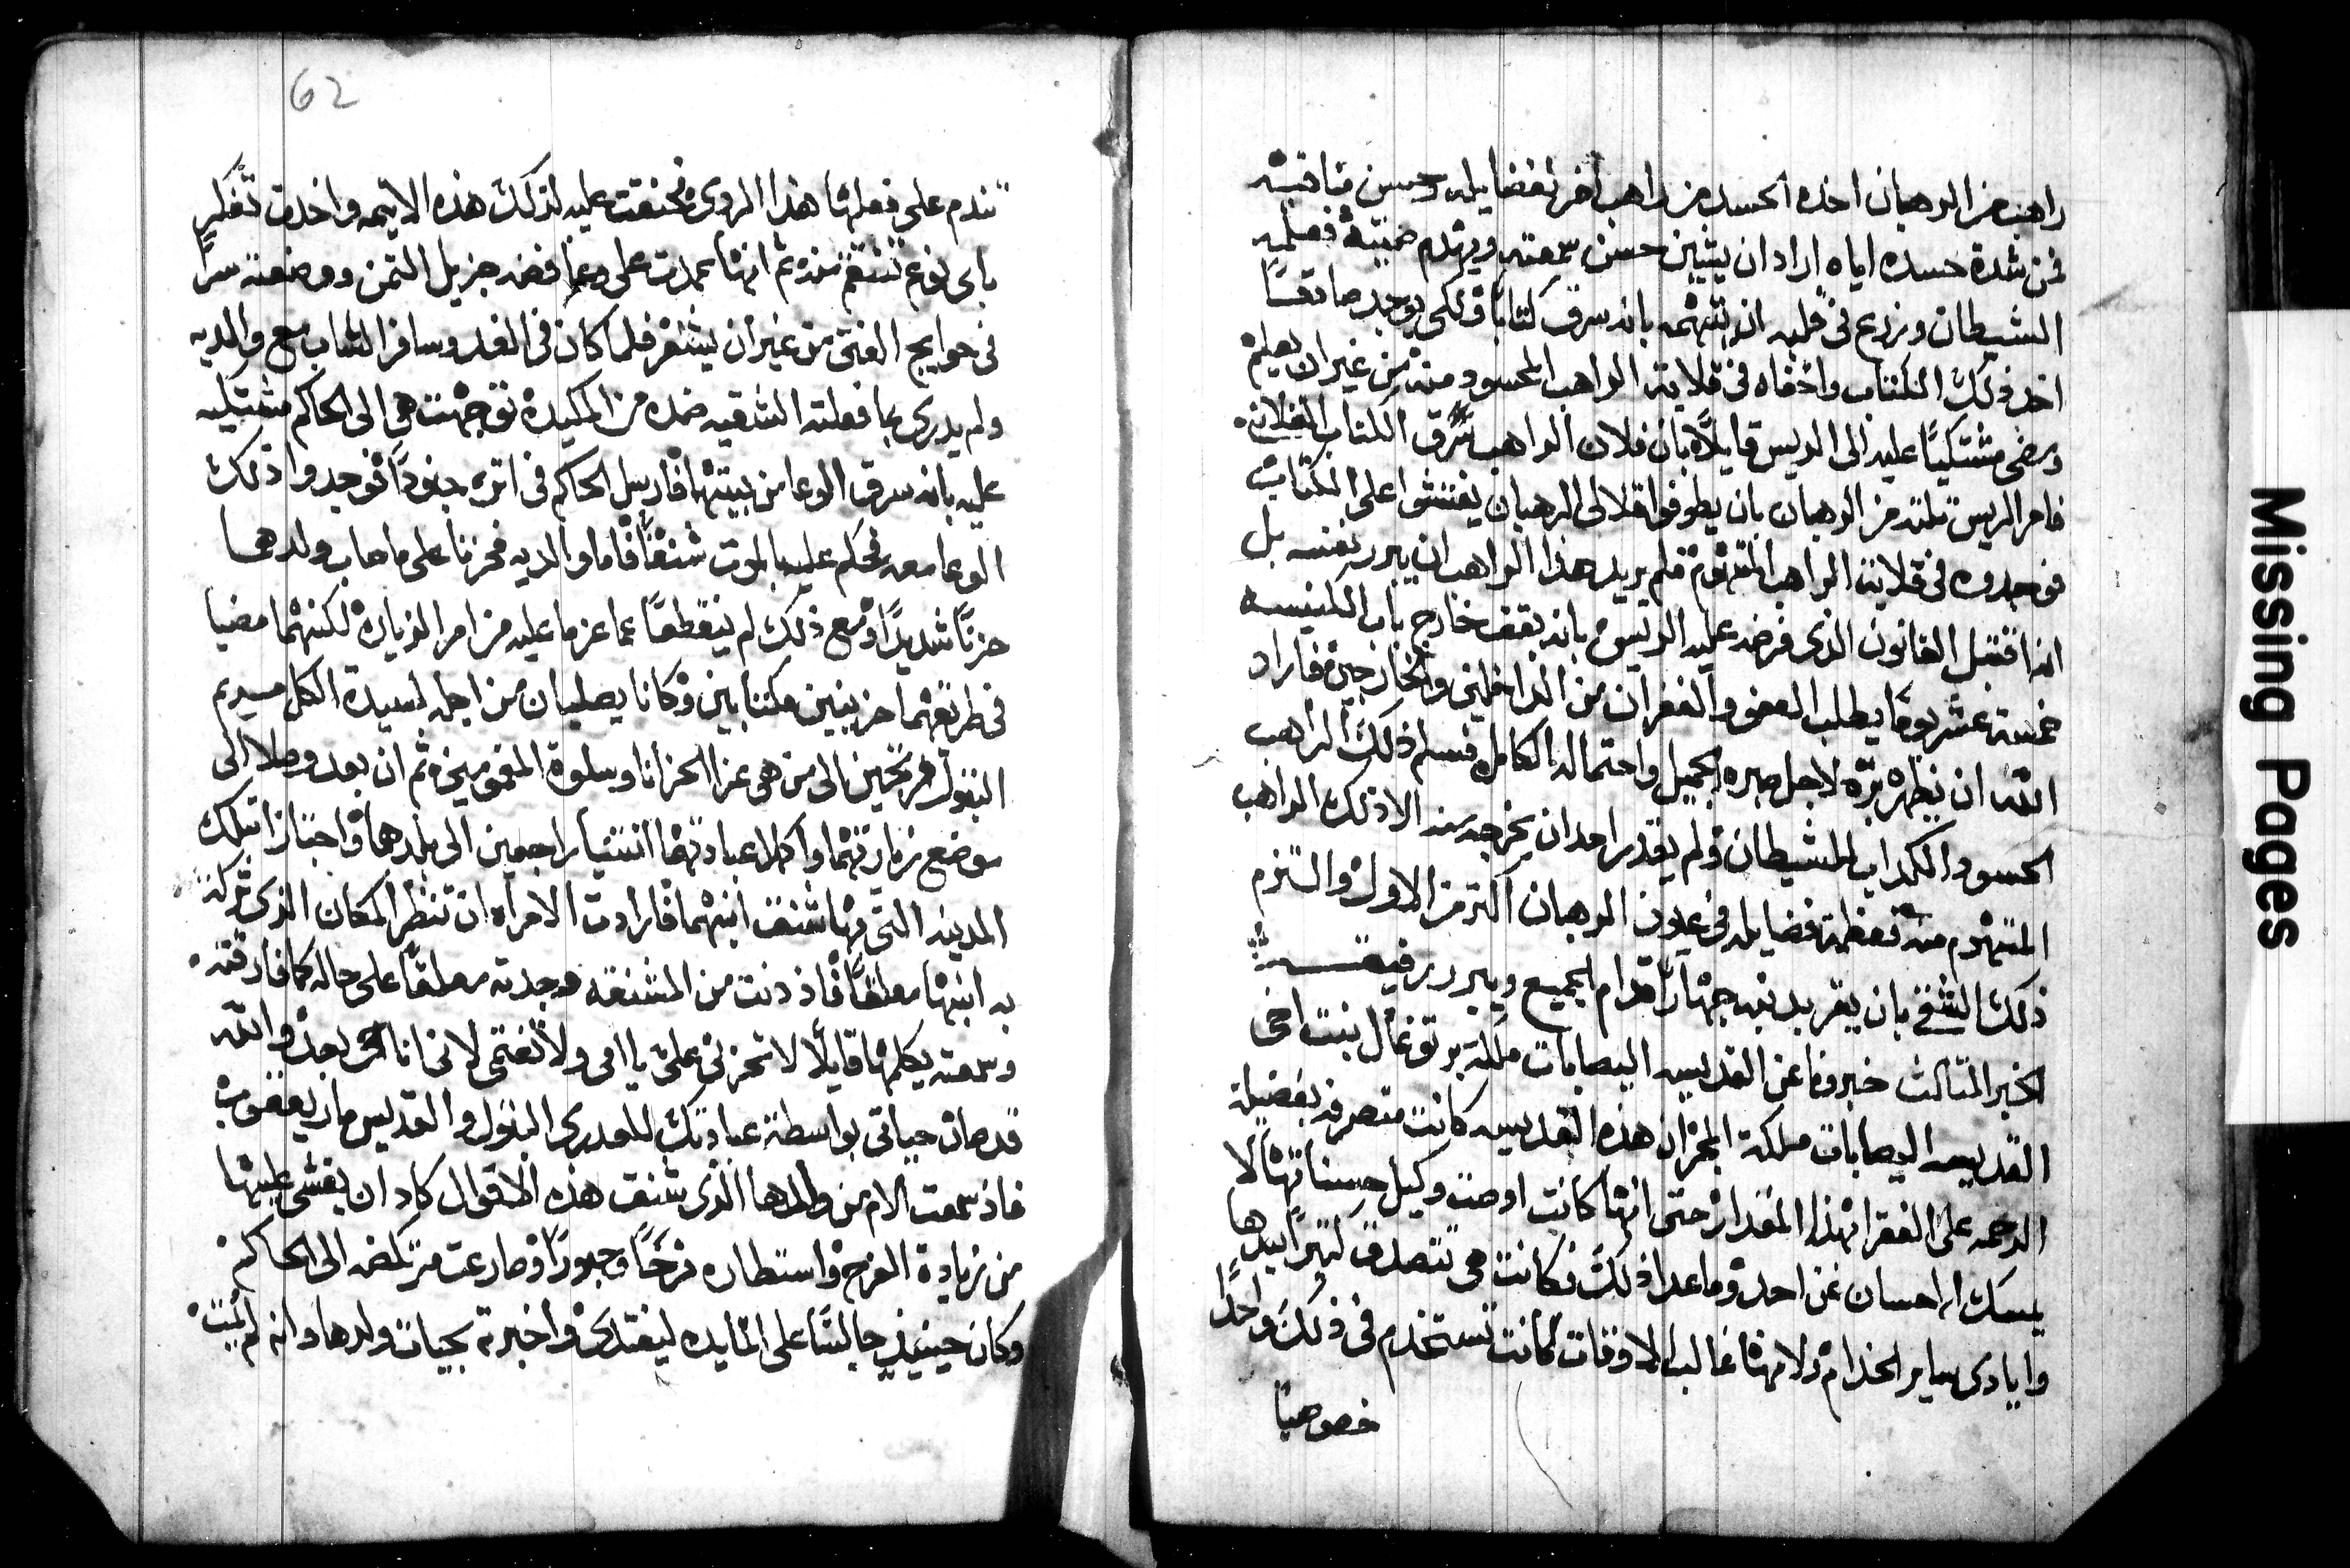 راهب من الرهبان اخذه الحسد من راهب اخر لفضايله وحسن مناقبه
فمن شدة حسده اياه اراد ان يشين حسن سمعته ويثلم صيته فعلمه
الشيطان وزرع في قلبه ان يتهمه بانه سرق كتاباً ولكي يوجد صادقاً
اخذ ذلك الكتاب واخفاه في قلاية الراهب المحسود منه من غير ان يعلم
ومضى مشتكياً عليه الى الريس قايلاً بان فلان الراهب سرق الكتاب الفلاني
فامر الريس تلته من الرهبان بان يطوفوا قلالي الرهبان يفتشوا على الكتاب
فوجدوه في قلاية الراهب المتهوم فلم يريد هذا الراهب ان يبرر نفسه بل
انه اقتبل القانون الذي فرضه عليه الريس بانه يقف خارج باب الكنيسه
خمسة عشر يوماً يطلب العفو والغفران من الداخلين والخارجين فاراد
الله ان يظهر بره لاجل صبره الجميل واحتماله الكامل فسلم ذلك الراهب
الحسود الكداب للشيطان ولم يقدر احد ان يخرجه منه الا ذلك الراهب
المتهوم منه فعظمة فضايله في عيون الرهبان اكتر من الاول والتزم
ذلك الشقي بان يقر بدنبه جهاراً قدام الجميع ويبرر رفيقه
الخبر التالث خبرونا عن القديسه اليصابات ملكة برتوغال بنت اخي
القديسه اليصابات ملكة المجر ان هذه القديسه كانت متصرفه بفضيلة
الرحمه على الفقرا بهذا المقدار حتى انها كانت اوصت وكيل حسناتها لا
يمسك الاحسان عن احد وما عدا ذلك فكانت هي تتصدق كتيراً بيدها
وايادي ساير الخدام ولانها غالب الاوقات كانت تستخدم في ذلك واحداً
خصوصياً
62
تندم على فعلها هذا الردي فحنقت عليه لذلك هذه الاتيمه واخدت تفكر
باي نوع تنتقم منه ثم انها عمدت على وعا فضه جزيل التمن ووضعته سراً
في حوايج الفتى من غير ان يشعر فلما كان في الغد وسافر الشاب مع والديه
ولم يدري بما فعلته الشقيه ضده من المكيدة توجهت هي الى الحاكم متشكيه
عليه بانه سرق الوعا من بيتها فارسل الحاكم في اتره جنوداً فوجدوا ذلك
الوعا معه فحكم عليه بالموت شنقاً فاما والديه فحزنا على ما صاب ولدهما
حزناً شديداً ومع ذلك لم ينقطعا عما عزما عليه من امر الزياره لكنهما مضيا
في طريقهما حزينين مكتابين وكانا يصليان من اجله لسيدة الكل مريم
البتول مرتجين الى من هي عزا الحزانا وسلوة المغمومين ثم ان بعد وصلا الى
موضع زيارتهما واكملا عبادتهما انتنيا راجعين الى بلدهما واجتازا بتلك
المدينه التي فيها شنق ابنهما فارادت الامراه ان تنظر المكان الذي تركته
به ابنها معلقاً فاذ دنت من المشنقه وجدته معلقاً على حاله كما فارقته
وسمعته يكلمها قايلاً لا تحزني علي يا امي ولا تغتمي لاني انا حي بعد والله
قد صان حياتي بواسطة عبادتك للعدري البتول والقديس مار يعقوب
فاذ سمعت الام من ولدها الذي شنق هذه الاقوال كاد ان يغشى عليها
من زيادة الفرح واستطاره فرحاً وحبوراً وصارعت متركضه الى الحاكم
وكان حينيذ جالساً على المايده ليغتدي واخبرته بحيات ولدها وانه لم يمت
Missing Pages